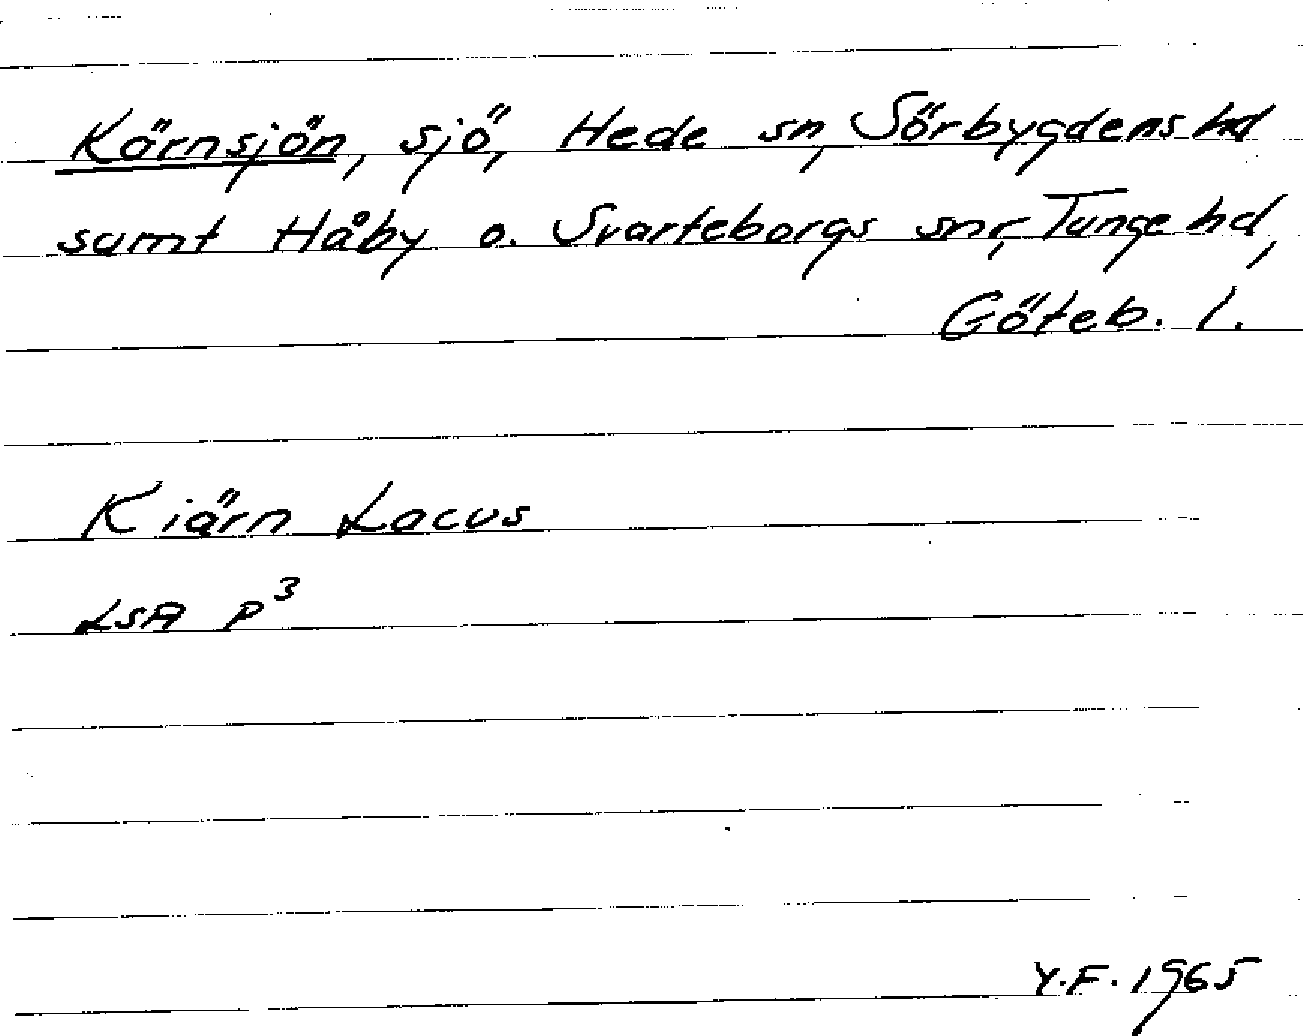 Kärnsjön, sjö, Hede sn, Sörbygdens hd
samt Håby o. Svarteborgs snr, Tunge hd,
Göteb. l.
Kiärn Lacus
LSA P³
Y.F. 1965